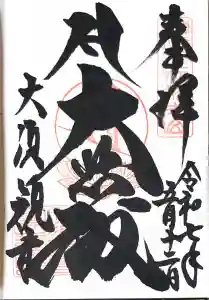 奉拝
令和七年
月十二日
大悲殿
大須観音